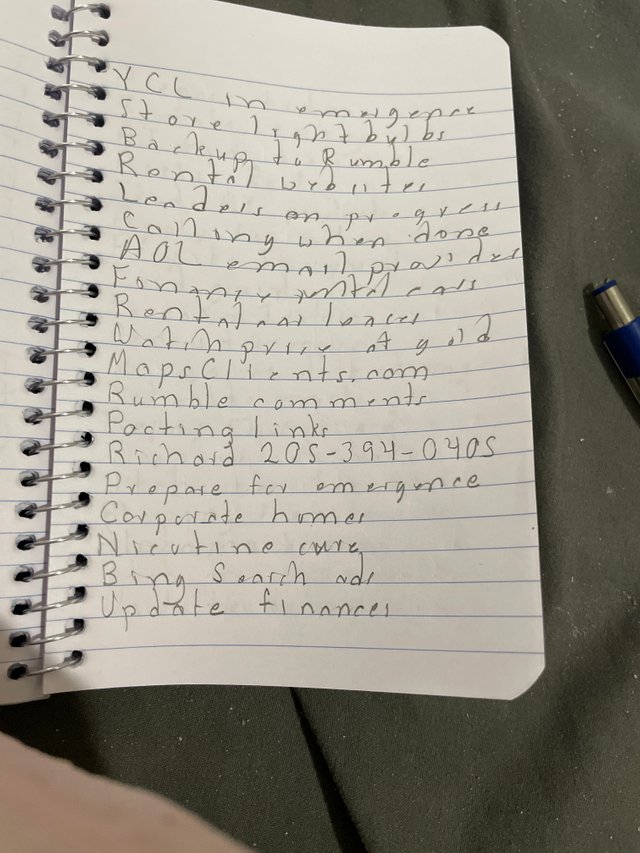 YCL in emergence
Store light bulbs
Backup to Rumble
Rental websites
Leaders on progress
Calling when done
AOL email provider
Finance rental cars
Rental
Watch price of gold
MapsClients.com
Rumble comments
Pacting links
Richard 205-394-0405
Prepare for emergence
Corporate homes
Nicotine cure
Bing Search ads
Update finances